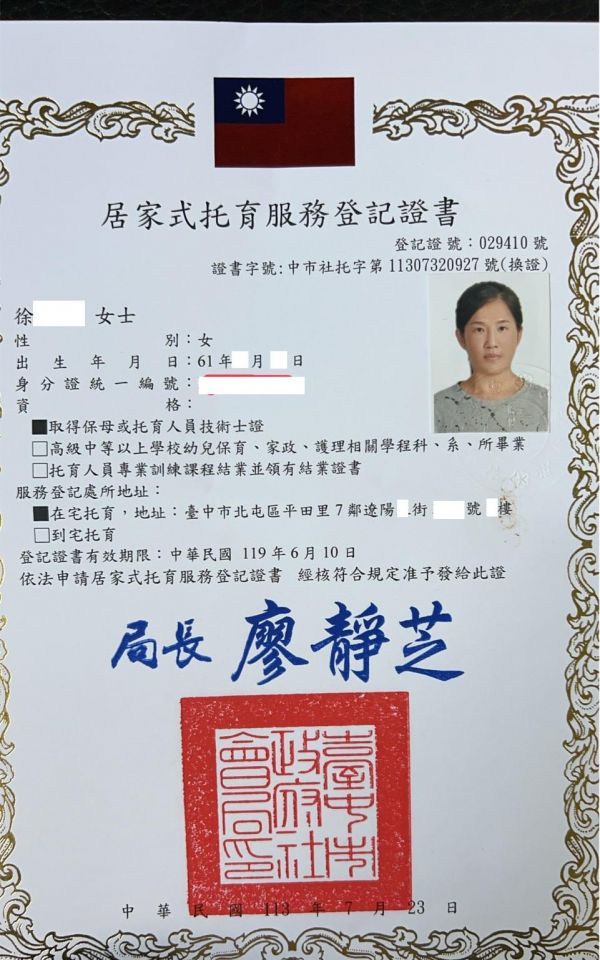 居家式托育服務登記證書
登記證號：029410號
證書字號:中市社托字第11307320927號(換證)
徐 女士
性別：女
出生年月日：61年 月 日
身分證統一編號：
資格：
■取得保母或托育人員技術士證
□高級中等以上學校幼兒保育、家政、護理相關學程科、系、所畢業
□托育人員專業訓練課程結業並領有結業證書
服務登記處所地址：
■在宅托育，地址：臺中市北屯區平田里7鄰遼陽 街 號 樓
□到宅托育
登記證書有效期限：中華民國 119年6月10日
依法申請居家式托育服務登記證書 經核符合規定准予發給此證
局長 廖靜芝
臺中市
政府社
會局印
中華民國 113 年 7 月 23 日